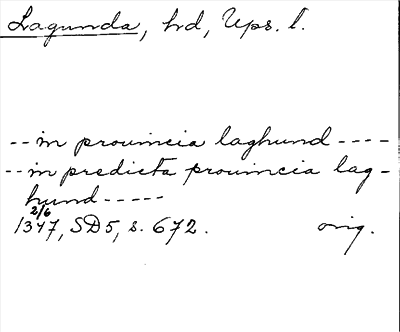 Lagunda, hd, Ups. l.
-- in prouincia laghund ----
-- in predicta prouincia lag-
hund -----
2/6
1347, SD5, s. 672. orig.